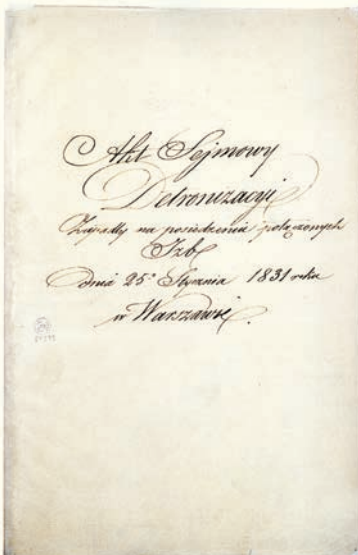 Akt Sejmowy
Detronizacyi
Zapadły na posiedzeniu połączonych
Izb
dnia 25º Stycznia 1831 roku
w Warszawie.